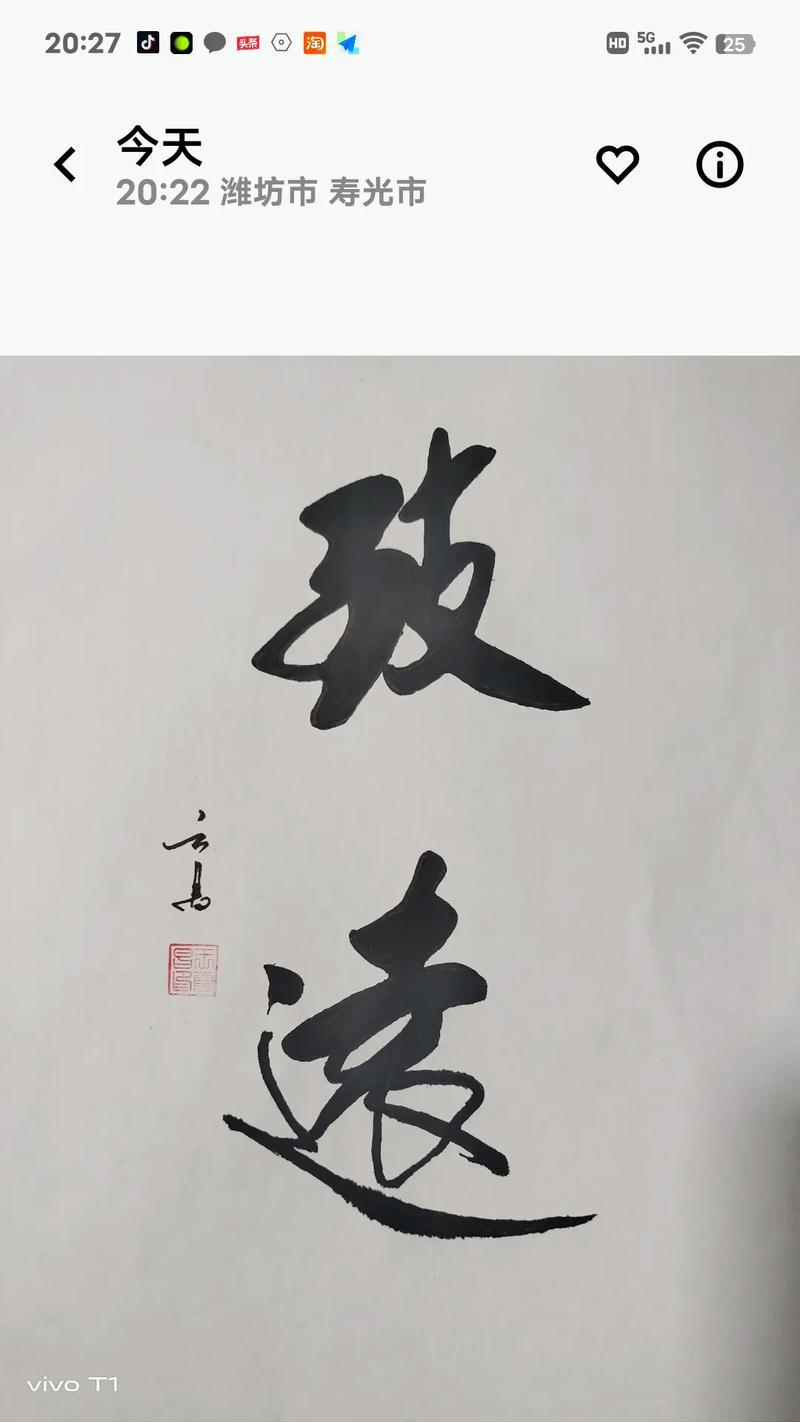 20:27
头条
淘
HD
5G
25
今天
20:22 潍坊市 寿光市
致
遠
vivo T1